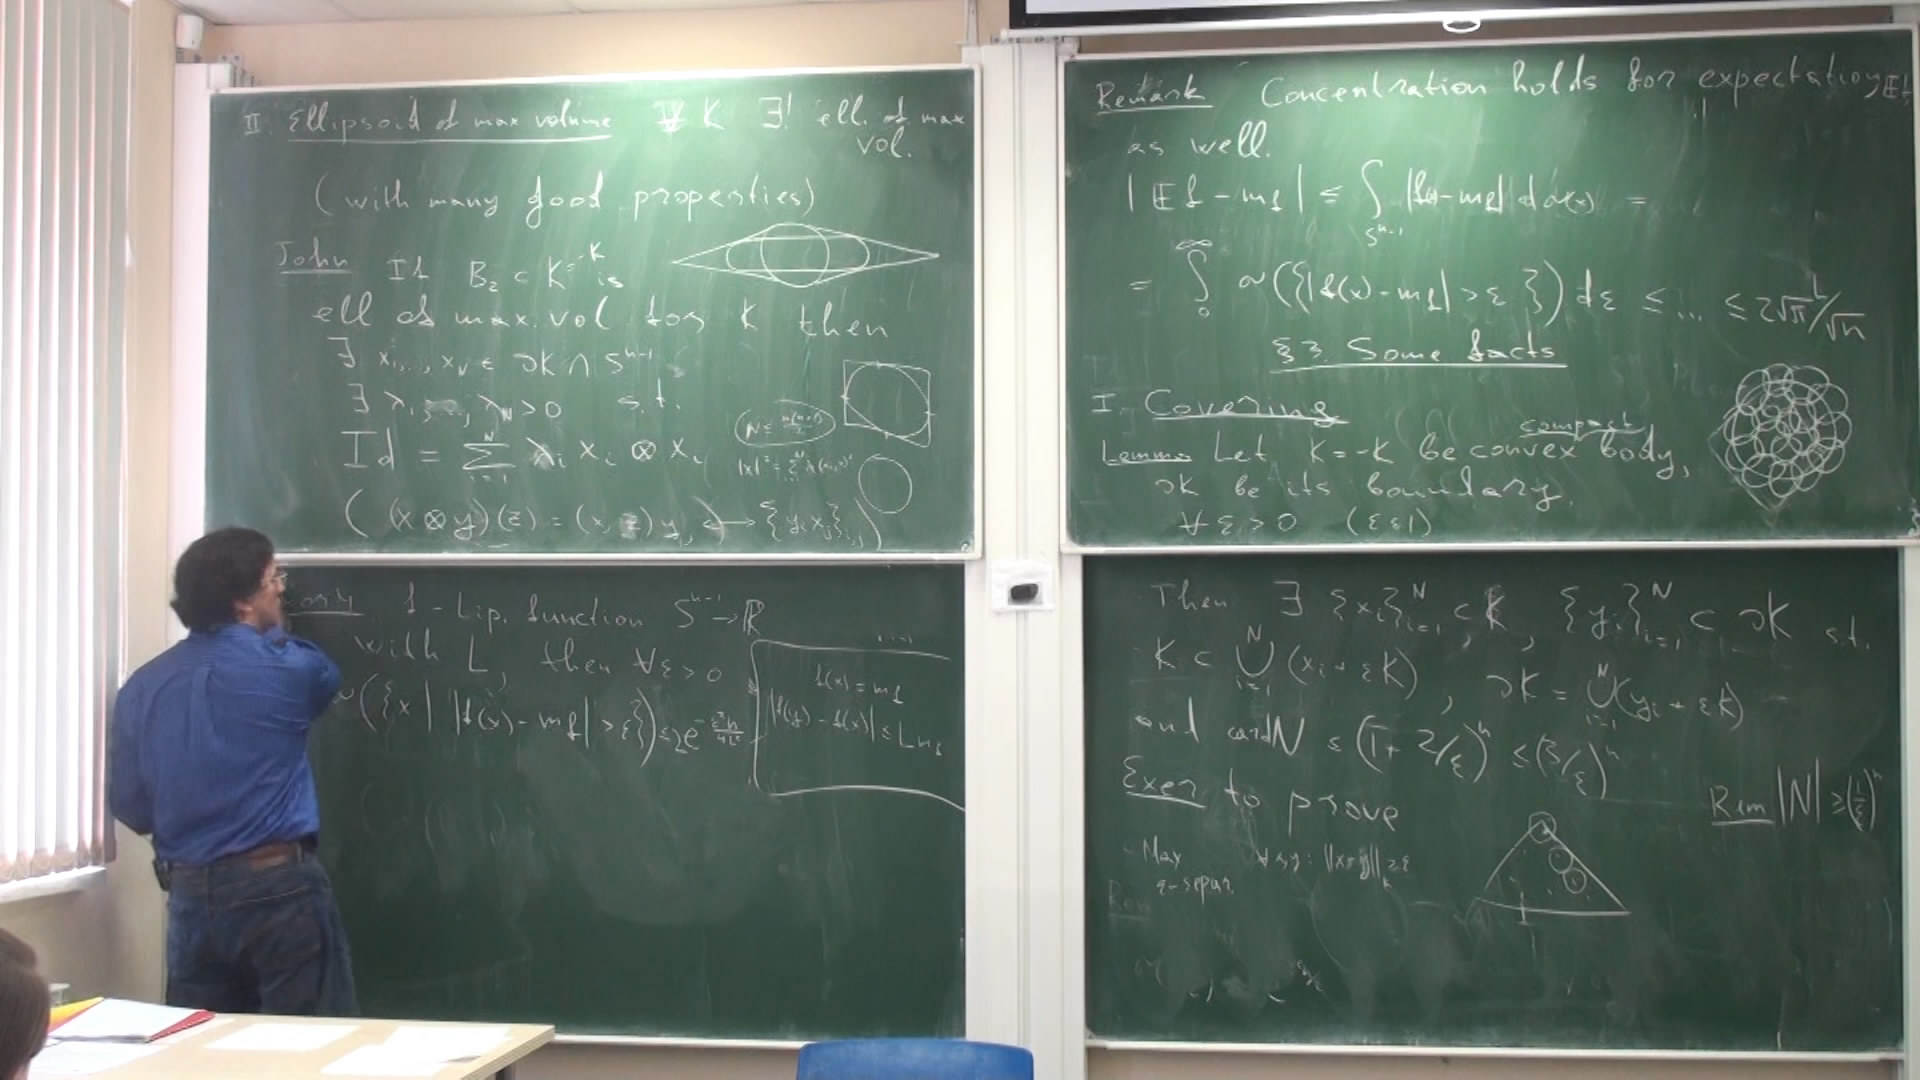 II. Ellipsoid of max volume ∀ K ∃! ell. of max
vol.
(with many good properties)
John If B₂ ⊂ K=-K is
ell of max. vol for K then
∃ x₁,..., x_N ∈ ∂K ∩ S^{n-1}
∃ λ₁, ..., λ_N > 0 s.t.
Id = Σ_{i=1}^{N} λ_i x_i ⊗ x_i
((x ⊗ y)(z) = (x, z) y, ↔ {y_i x_j}_{i,j})
f - Lip. function S^{n-1} → ℝ
with L, then ∀ε > 0
σ({x | |f(x) - m_f| > ε}) ≤ 2e^{-ε²n/4L²}
f(x) = m_f
|f(y) - f(x)| ≤ L
Remark Concentration holds for expectation, Ef
as well.
|Ef - m_f| ≤ ∫_{S^{n-1}} |f(x) - m_f| dσ(x) =
= ∫_0^∞ σ({|f(x) - m_f| > ε}) dε ≤ ... ≤ 2√π L/√n
§3. Some facts
I. Covering
compact
Lemma Let K = -K be convex body,
∂K be its boundary.
∀ ε > 0 (ε ≤ 1)
Then ∃ {x_i}_{i=1}^N ⊂ K, {y_i}_{i=1}^N ⊂ ∂K s.t.
K ⊂ ∪_{i=1}^N (x_i + εK), ∂K = ∪_{i=1}^N (y_i + εK)
and card N ≤ (1 + 2/ε)^n ≤ (3/ε)^n
Exer to prove
Rem |N| ≥ (1/ε)^n
Max ∀ x,y: ||x-y||_K ≥ ε
ε-separ.